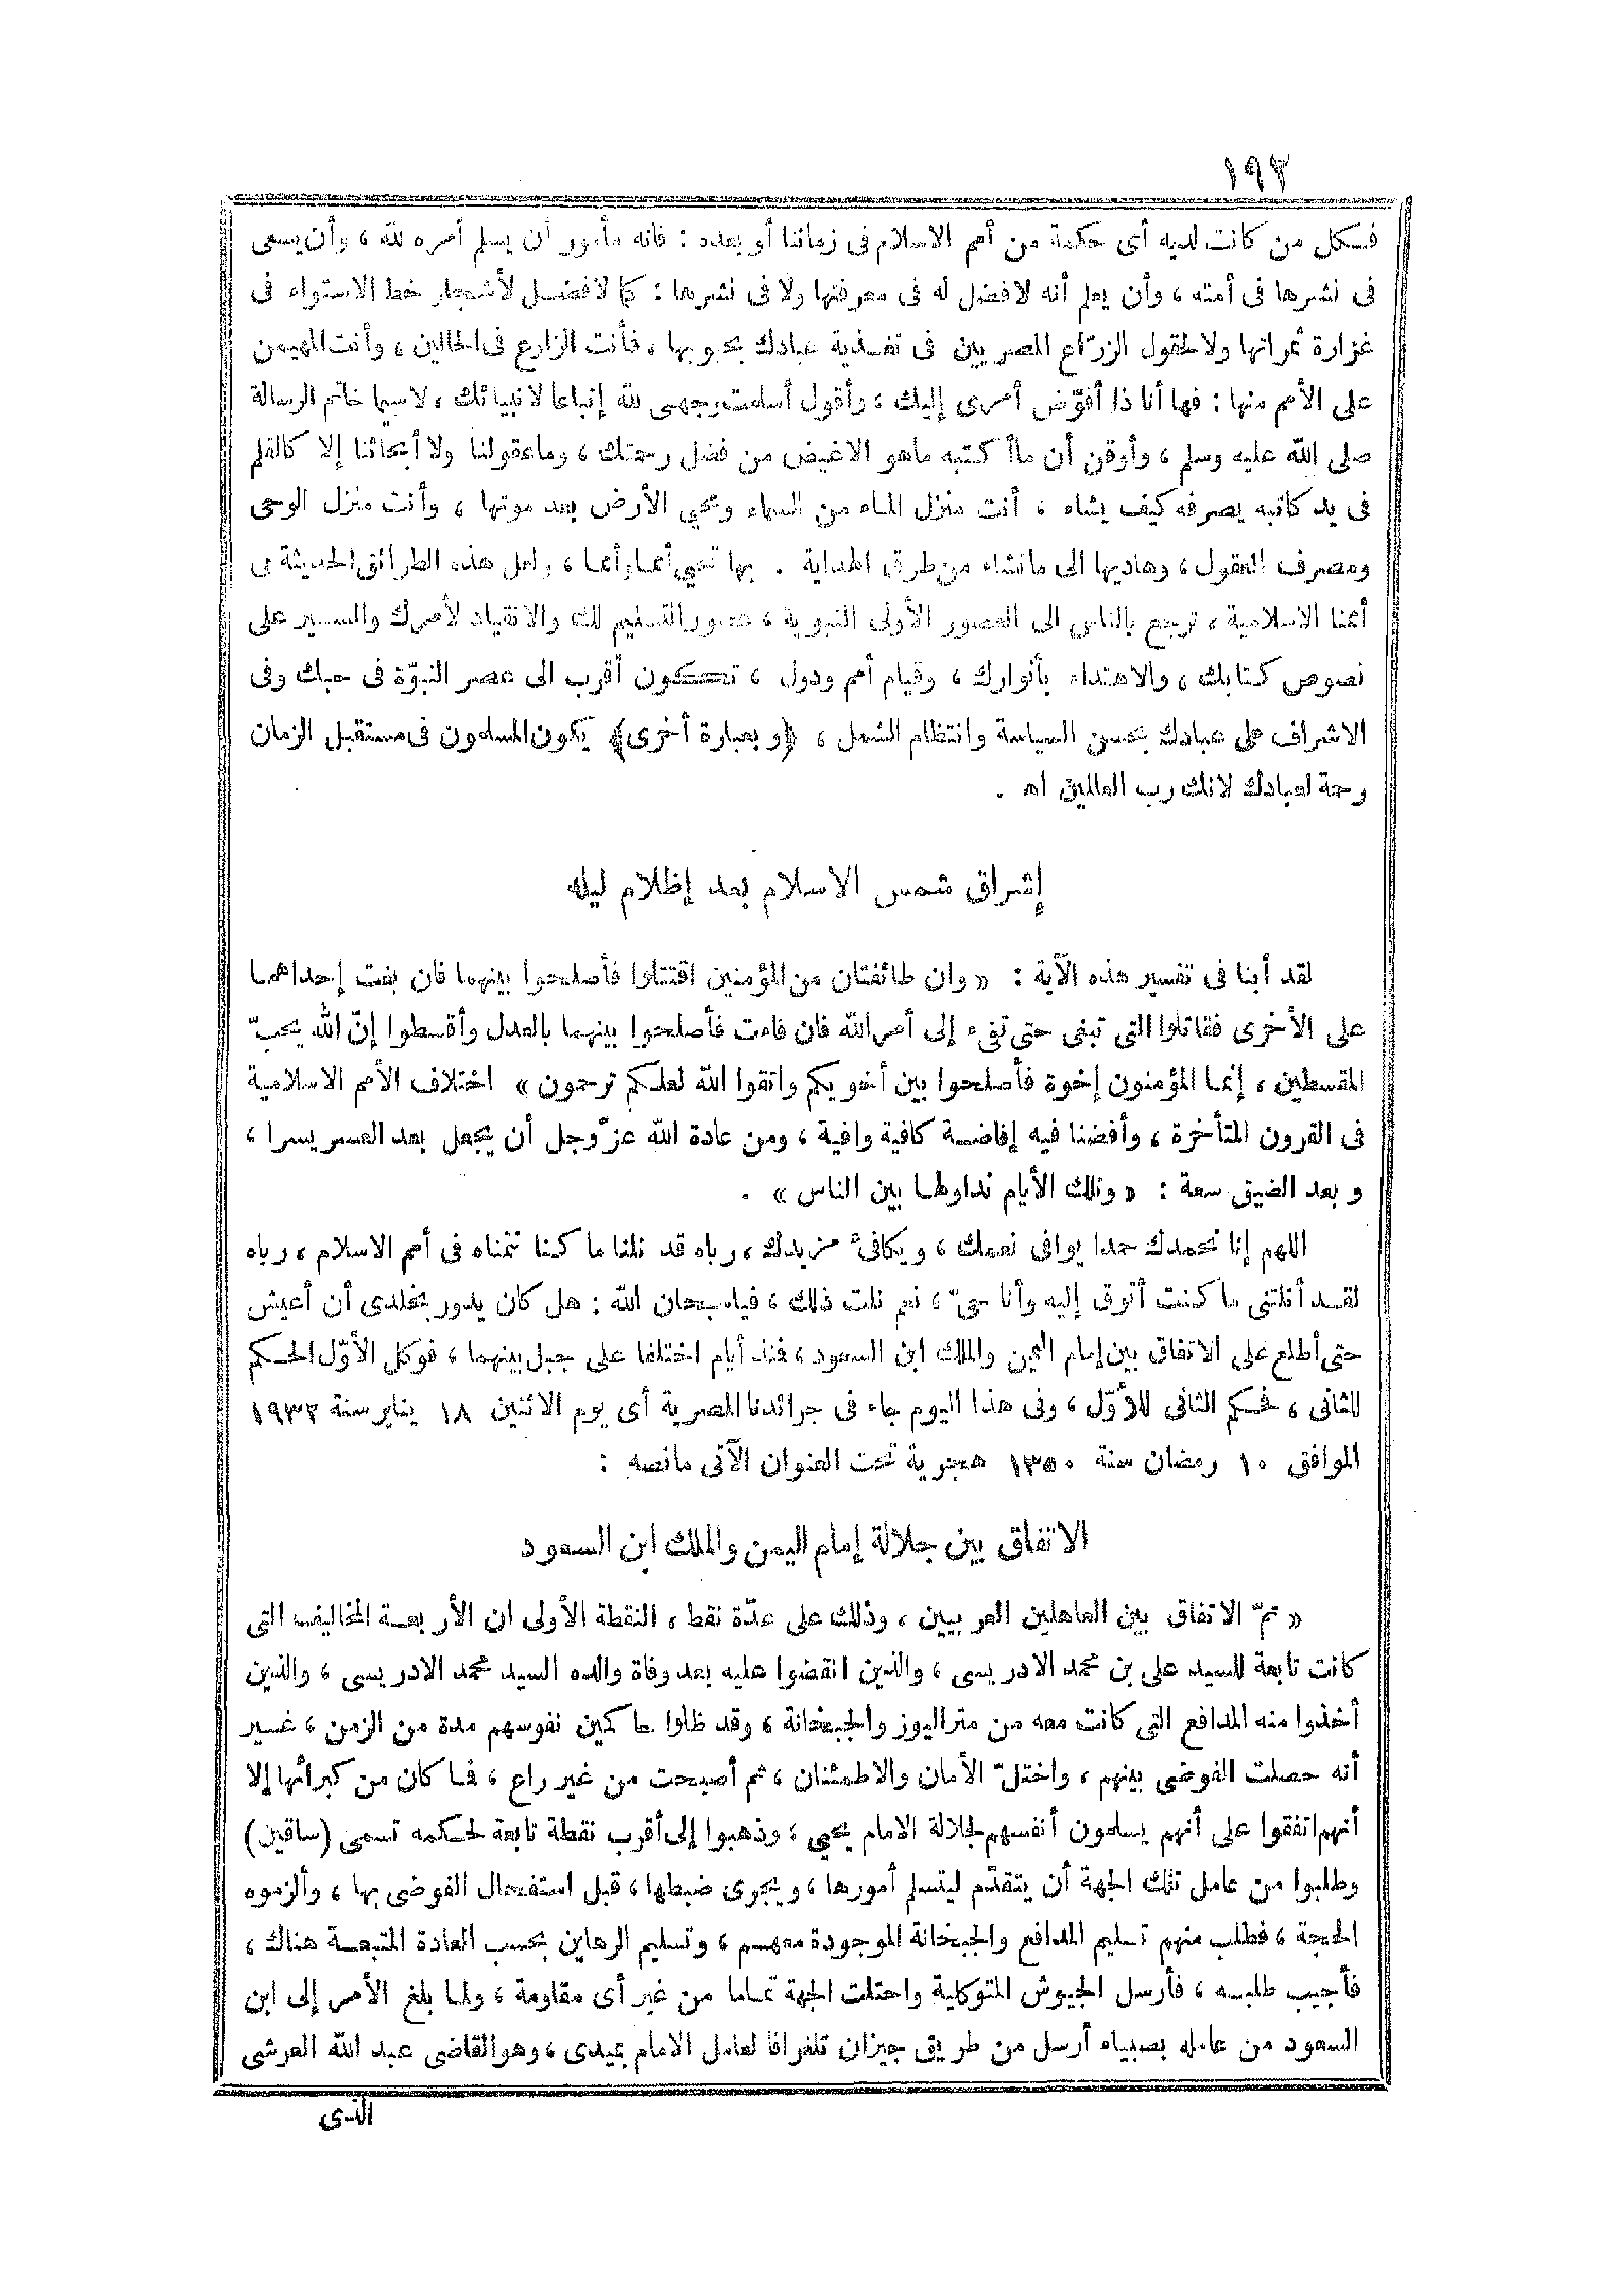 ١٩٢
فكل من كانت لديه أى حكمة من أمم الاسلام فى زماننا أو بعده : فانه مأمور أن يسلم أمره لله ، وأن يسعى
فى نشرها فى أمته ، وأن يعلم أنه لافضل له فى معرفتها ولا فى نشرها : كما لافضل لأشجار خط الاستواء فى
غزارة ثمراتها ولا لحقول الزرّاع المصريين فى تغذية عبادك بحبوبها ، فأنت الزارع فى الحالين ، وأنت المهيمن
على الأمم منها : فها أنا ذا أفوّض أمرى إليك ، وأقول أسلمت وجهى لله إتباعا لانبيائك ، لاسيما خاتم الرسالة
صلى الله عليه وسلم ، وأوقن أن ماأكتبه ماهو الاغيض من فضل رحمتك ، وماعقولنا ولا أبحاثنا إلا كالقلم
فى يد كاتبه يصرفه كيف يشاء ، أنت منزل الماء من السماء ومحيي الأرض بعد موتها ، وأنت منزل الوحى
ومصرف العقول ، وهاديها الى ماتشاء من طرق الهداية . بها تحيى أمما وأمما ، ولعل هذه الطرائق الحديثة فى
أممنا الاسلامية ، ترجع بالناس الى العصور الأولى النبوية ، عصور التسليم لك والانقياد لأمرك والسير على
نصوص كتابك ، والاهتداء بأنوارك ، وقيام أمم ودول ، تكون أقرب الى عصر النبوّة فى حبك وفى
الاشراف على عبادك بحسن السياسة وانتظام الشمل ، ﴿وبعبارة أخرى﴾ يكون المسلمون فى مستقبل الزمان
رحمة لعبادك لانك رب العالمين اه .
إشراق شمس الاسلام بعد إظلام ليله
لقد أبنا فى تفسير هذه الآية : « وان طائفتان من المؤمنين اقتتلوا فأصلحوا بينهما فان بغت إحداهما
على الأخرى فقاتلوا التى تبغى حتى تفىء إلى أمر الله فان فاءت فأصلحوا بينهما بالعدل وأقسطوا إنّ الله يحبّ
المقسطين ، إنما المؤمنون إخوة فأصلحوا بين أخويكم واتقوا الله لعلكم ترحمون » اختلاف الأمم الاسلامية
فى القرون المتأخرة ، وأفضنا فيه إفاضة كافية وافية ، ومن عادة الله عزّ وجل أن يجعل بعد العسر يسرا ،
وبعد الضيق سعة : « وتلك الأيام نداولها بين الناس » .
اللهم إنا نحمدك حمدا يوافى نعمك ، ويكافئ مزيدك ، رباه قد نلنا ما كنا نتمناه فى أمم الاسلام ، رباه
لقد أنلتنى ما كنت أتوق إليه وأنا حىّ ، نعم نلت ذلك ، فياسبحان الله : هل كان يدور بخلدى أن أعيش
حتى أطلع على الاتفاق بين إمام اليمن والملك ابن السعود ، فمنذ أيام اختلفا على جبل بينهما ، فوكل الأوّل الحكم
للثانى ، فحكم الثانى للأوّل ، وفى هذا اليوم جاء فى جرائدنا المصرية أى يوم الاثنين ١٨ يناير سنة ١٩٣٢
الموافق ١٠ رمضان سنة ١٣٥٠ هجرية تحت العنوان الآتى مانصه :
الاتفاق بين جلالة إمام اليمن والملك ابن السعود
« تمّ الاتفاق بين العاهلين العربيين ، وذلك على عدّة نقط ، النقطة الأولى ان الأربعة المخاليف التى
كانت تابعة للسيد على بن محمد الادريسى ، والذين انقضوا عليه بعد وفاة والده السيد محمد الادريسى ، والذين
أخذوا منه المدافع التى كانت معه من متراليوز والجبخانة ، وقد ظلوا حاكمين نفوسهم مدة من الزمن ، غير
أنه حصلت الفوضى بينهم ، واختلّ الأمان والاطمئنان ، ثم أصبحت من غير راع ، فما كان من كبرائها إلا
أنهم اتفقوا على أنهم يسلمون أنفسهم لجلالة الامام يحيى ، وذهبوا إلى أقرب نقطة تابعة لحكمه تسمى (ساقين)
وطلبوا من عامل تلك الجهة أن يتقدّم ليتسلم أمورها ، ويجرى ضبطها ، قبل استفحال الفوضى بها ، وألزموه
الحجة ، فطلب منهم تسليم المدافع والجبخانة الموجودة معهم ، وتسليم الرهاين بحسب العادة المتبعة هناك ،
فأجيب طلبه ، فأرسل الجيوش المتوكلية واحتلت الجهة تماما من غير أى مقاومة ، ولما بلغ الأمر إلى ابن
السعود من عامله بصبياء أرسل من طريق جيزان تلغرافا لعامل الامام بميدى ، وهو القاضى عبد الله العرشى
الذى